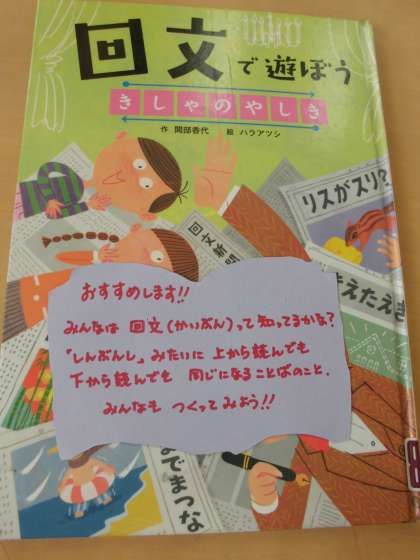 回文で遊ぼう
きしゃのやしき
作 岡部香代 絵 ハラアツシ
リスがスリ?
回文新聞
おすすめします!!
みんなは 回文(かいぶん)って知ってるかな?
「しんぶんし」みたいに 上から読んでも
下から読んでも 同じになることばのこと.
みんなも つくってみよう!!
までまつな
8